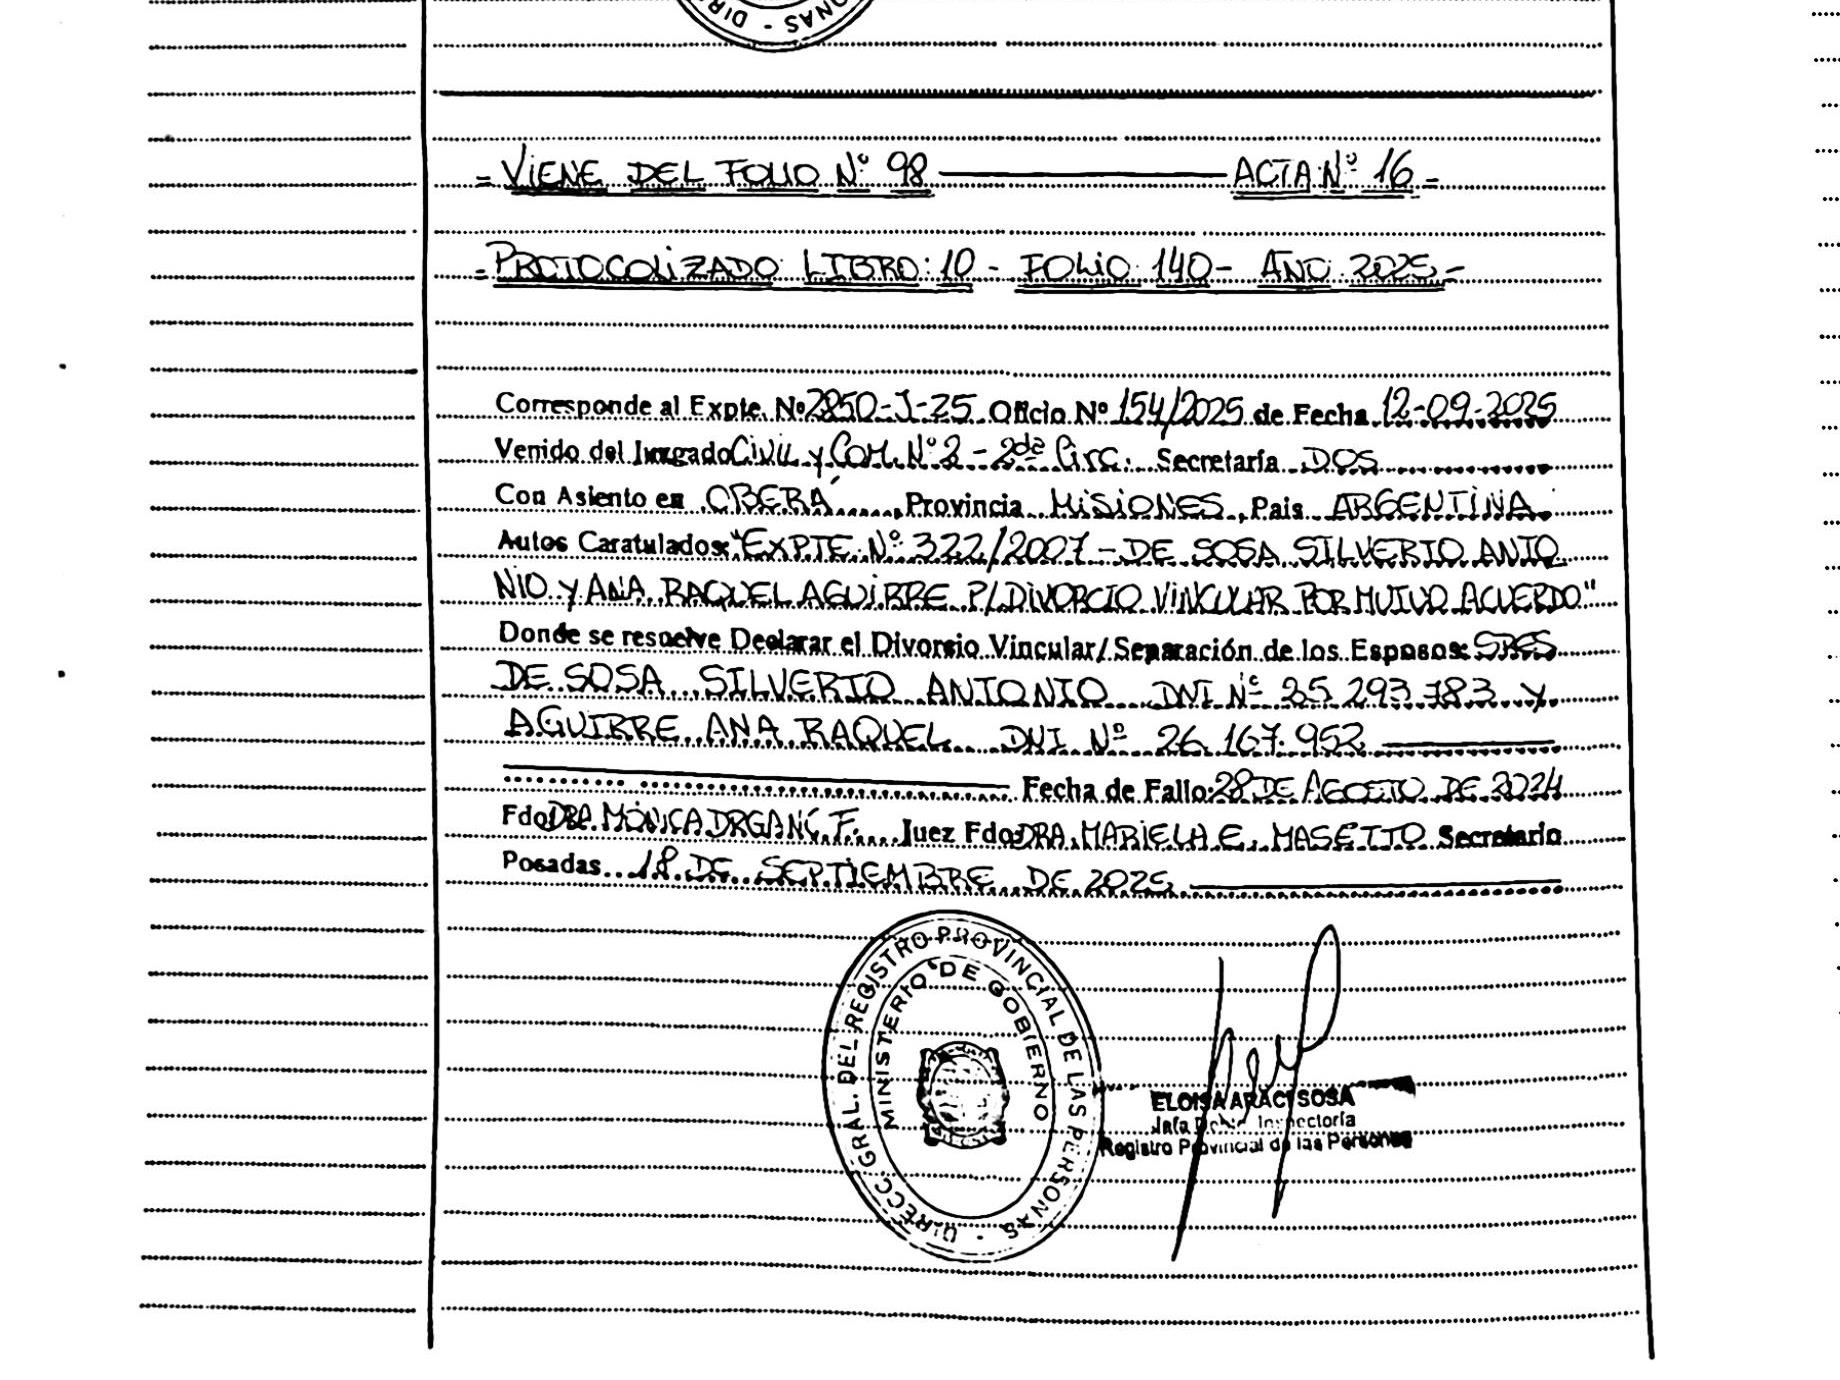 DIR - NAS
= VIENE DEL FOLIO Nº 98 ACTA Nº 16 =
= PROTOCOLIZADO LIBRO: 10 - FOLIO: 140 - AÑO: 2025 =
Corresponde al Expte. Nº 2850-J-25 Oficio Nº 154/2025 de Fecha 12-09-2025
Venido del Juzgado CIVIL y COM. Nº 2 - 2da Circ. Secretaría DOS
Con Asiento en OBERÁ Provincia MISIONES País ARGENTINA
Autos Caratulados: "EXPTE. Nº 322/2007 - DE SOSA SILVERIO ANTO
NIO Y ANA RAQUEL AGUIRRE P/DIVORCIO VINCULAR POR MUTUO ACUERDO"
Donde se resuelve Declarar el Divorcio Vincular/Separación de los Esposos: SRES
DE SOSA SILVERIO ANTONIO DNI Nº 25.293.783 y
AGUIRRE ANA RAQUEL DNI Nº 26.167.952
Fecha de Fallo: 28 DE AGOSTO DE 2024
Fdo: DRA. MÓNICA F. Juez Fdo: DRA. MARIELA E. MASETTO Secretario
Posadas 18 DE SEPTIEMBRE DE 2025
DIRECC. GRAL. DEL REGISTRO PROVINCIAL DE LAS PERSONAS -
MINISTERIO DE GOBIERNO
ELOISA ARACI SOSA
Jefa Inspectoría
Registro Provincial de las Personas